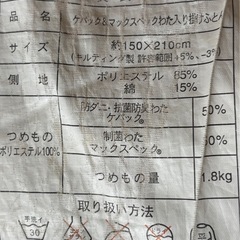 品名 ケパック&マックスペックわた入り掛けふとん
サイズ 約150×210cm
(キルティング製品 許容範囲+5%、-3%)
側地 ポリエステル 85%
綿 15%
つめもの
ポリエステル100%
防ダニ・抗菌防臭わた
ケパック® 50%
制菌わた
マックスペック® 50%
つめもの量 1.8kg
取り扱い方法
手洗イ
30